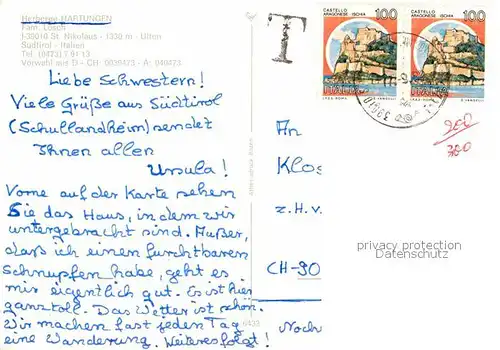 Herberge HARTUNGEN
Fam. Lösch
I-39010 St. Nikolaus - 1330 m - Ulten
Südtirol - Italien
Tel. (0473) 7 91 13
Vorwahl aus D - CH: 0039473 - A: 040473
Liebe Schwestern!
Viele Grüße aus Südtirol
(Schullandheim) sendet
Ihnen allen
Ursula!
Vorne auf der Karte sehen
Sie das Haus, in dem wir
untergebracht sind. Außer,
daß ich einen furchtbaren
Schnupfen habe, geht es
mir eigentlich gut. Es ist hier
ganz toll. Das Wetter ist schön.
Wir machen fast jeden Tag
eine Wanderung. Weiteres folgt!
T
CASTELLO
ARAGONESE ISCHIA
100
CASTELLO
ARAGONESE ISCHIA
100
ITALIA
ITALIA
An
Klos
z.H.v.
privacy protection
Datenschutz
CH-90
Noch